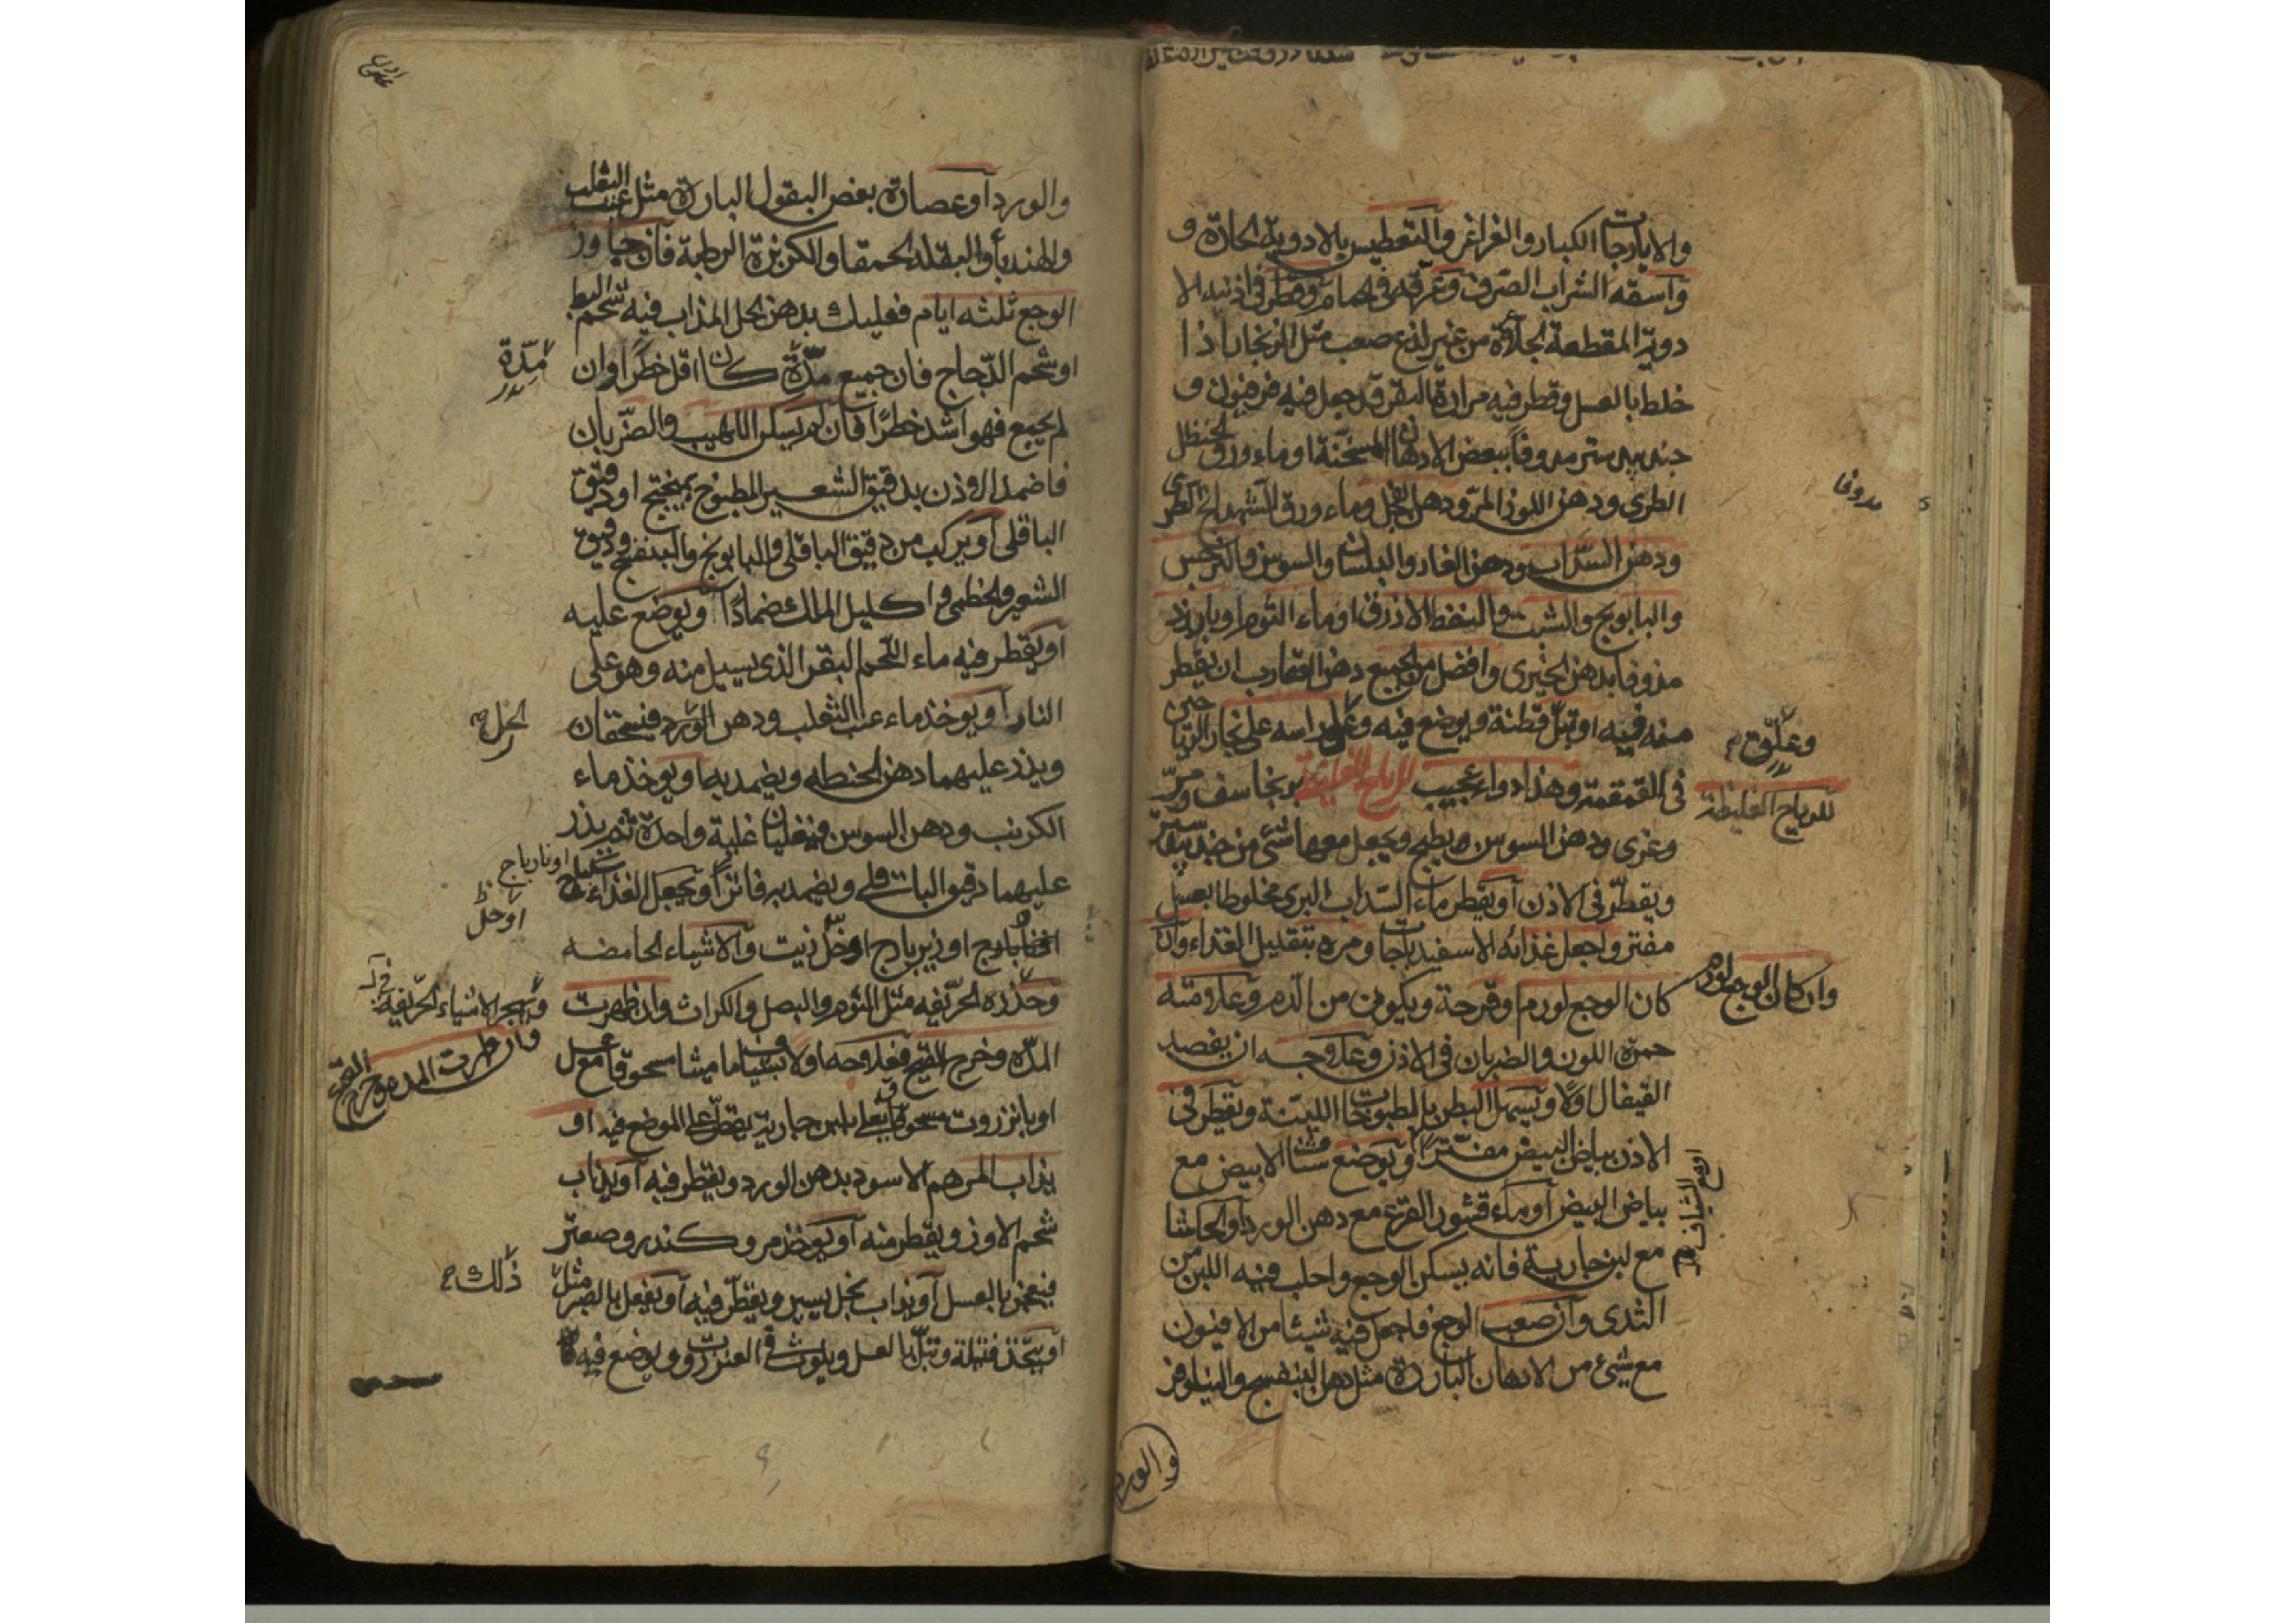 والايارجات الكبار والغراغر والتعطيس بالادوية الحادّة و
واسقه الشراب الصرف وعرقه فى الحمام وقطر فى اذنيه الا
دوية المقطعة الجلاءة من غير لذع صعب مثل الزنجار اذا
خلط بالعسل وقطر فيه مرارة البقر قد جعل فيه فرفيون و
جندبيدستر مدوفا ببعض الادهان المسخنة او ماء ورق الحنظل
الطرى ودهن اللوز المرّ ودهن الفجل وماء ورق الشهدانج الطرى
ودهن السذاب ودهن الغار والبلسان والسوسن والنرجس
والبابونج والشبت والنفط الازرق او ماء الثوم او بارزد
مدوفا بدهن الخيرى وافضل من الجميع دهن العقارب ان يقطر
منه فيه او تبلّ قطنة ويوضع فيه وعلق راسه على بخار الرياحين
فى القمقمة وهذا دواء عجيب للرياح الغليظة برنجاسف ومرّ
وغرى ودهن السوسن ويطبخ ويجعل معها شئ من جندبيدستر
ويقطّر فى الاذن او يقطر ماء السذاب البرى مخلوطا بعسل
مفتر واجعل غذائه الاسفيدباجات ومره بتقليل الغذاء وان
كان الوجع لورم او قرحة ويكون من الدم وعلامته
حمرة اللون والضربان فى الاذن وعلاجه ان يفصد
القيفال اولا ويسهل البطن بالمطبوخات اللينة ويقطر فى
الاذن بياض البيض مفترا او يوضع شياف الابيض مع
بياض البيض او ماء قشور القرع مع دهن الورد او
مع لبن جارية فانه يسكن الوجع واحلب فيه اللبن من
الثدى وان صعب الوجع فاجعل فيه شيئا من الافيون
مع شئ من الادهان الباردة مثل دهن البنفسج والنيلوفر
والورد
مدوفا
وعلّق
للرياح الغليظة
وان كان الوجع لورم
والورد او عصارة بعض البقول الباردة مثل عنب الثعلب
والهندباء والبقلة الحمقا والكزبرة الرطبة فان جاوز
الوجع ثلثه ايام فعليك بدهن الخل المذاب فيه شحم البط
او شحم الدّجاج فان جميع مدّة كان اقل خطرا وان
لم يجمع فهو اشد خطرًا فان لم يسكن اللهيب والضّربان
فاضمد الاذن بدقيق الشعير المطبوخ بميفختج او دقيق
الباقلى او يركب من دقيق الباقلى والبابونج والبنفسج ودقيق
الشعير والخطمى واكليل الملك ضمادًا ويوضع عليه
او يقطر فيه ماء اللحم البقر الذى يسيل منه وهو على
النار او يوخذ ماء عنب الثعلب ودهن الورد فيسحقان
ويذر عليهما دهن الحنطه ويضمد به او يوخذ ماء
الكرنب ودهن السوسن فيغليان غلية واحدة ثم يذر
عليهما دقيق الباقلى ويضمد به فاترًا ويجعل الغذاء
او زيرباج او خلّ زيت والاشياء الحامضه
وحذّره الحرّيفه مثل الثوم والبصل والكراث وان ظهرت
المدّه وخرج القيح فعلاجه اولا بشياف ماميثا مسحوقا مع عسل
او بانزروت مسحوقا على بلبن جارية يقطر على الموضع فيه او
يذاب المرهم الاسود بدهن الورد ويقطر فيه او يذاب
شحم الاوز ويقطر منه او يوخذ مر وكندر وصعتر
فيعجن بالعسل او يذاب بخل يسير ويقطّر فيه او يفعل بالصبر مثل
او يتخذ فتيلة وتبلّ بالعسل ويلوث فى العنزروت ويوضع فيه
مِدّة
الخل
او نارباج
او خل
ويهجر الاشياء الحرّيفة
وان ظهرت المده وخرج القيح
ذلك